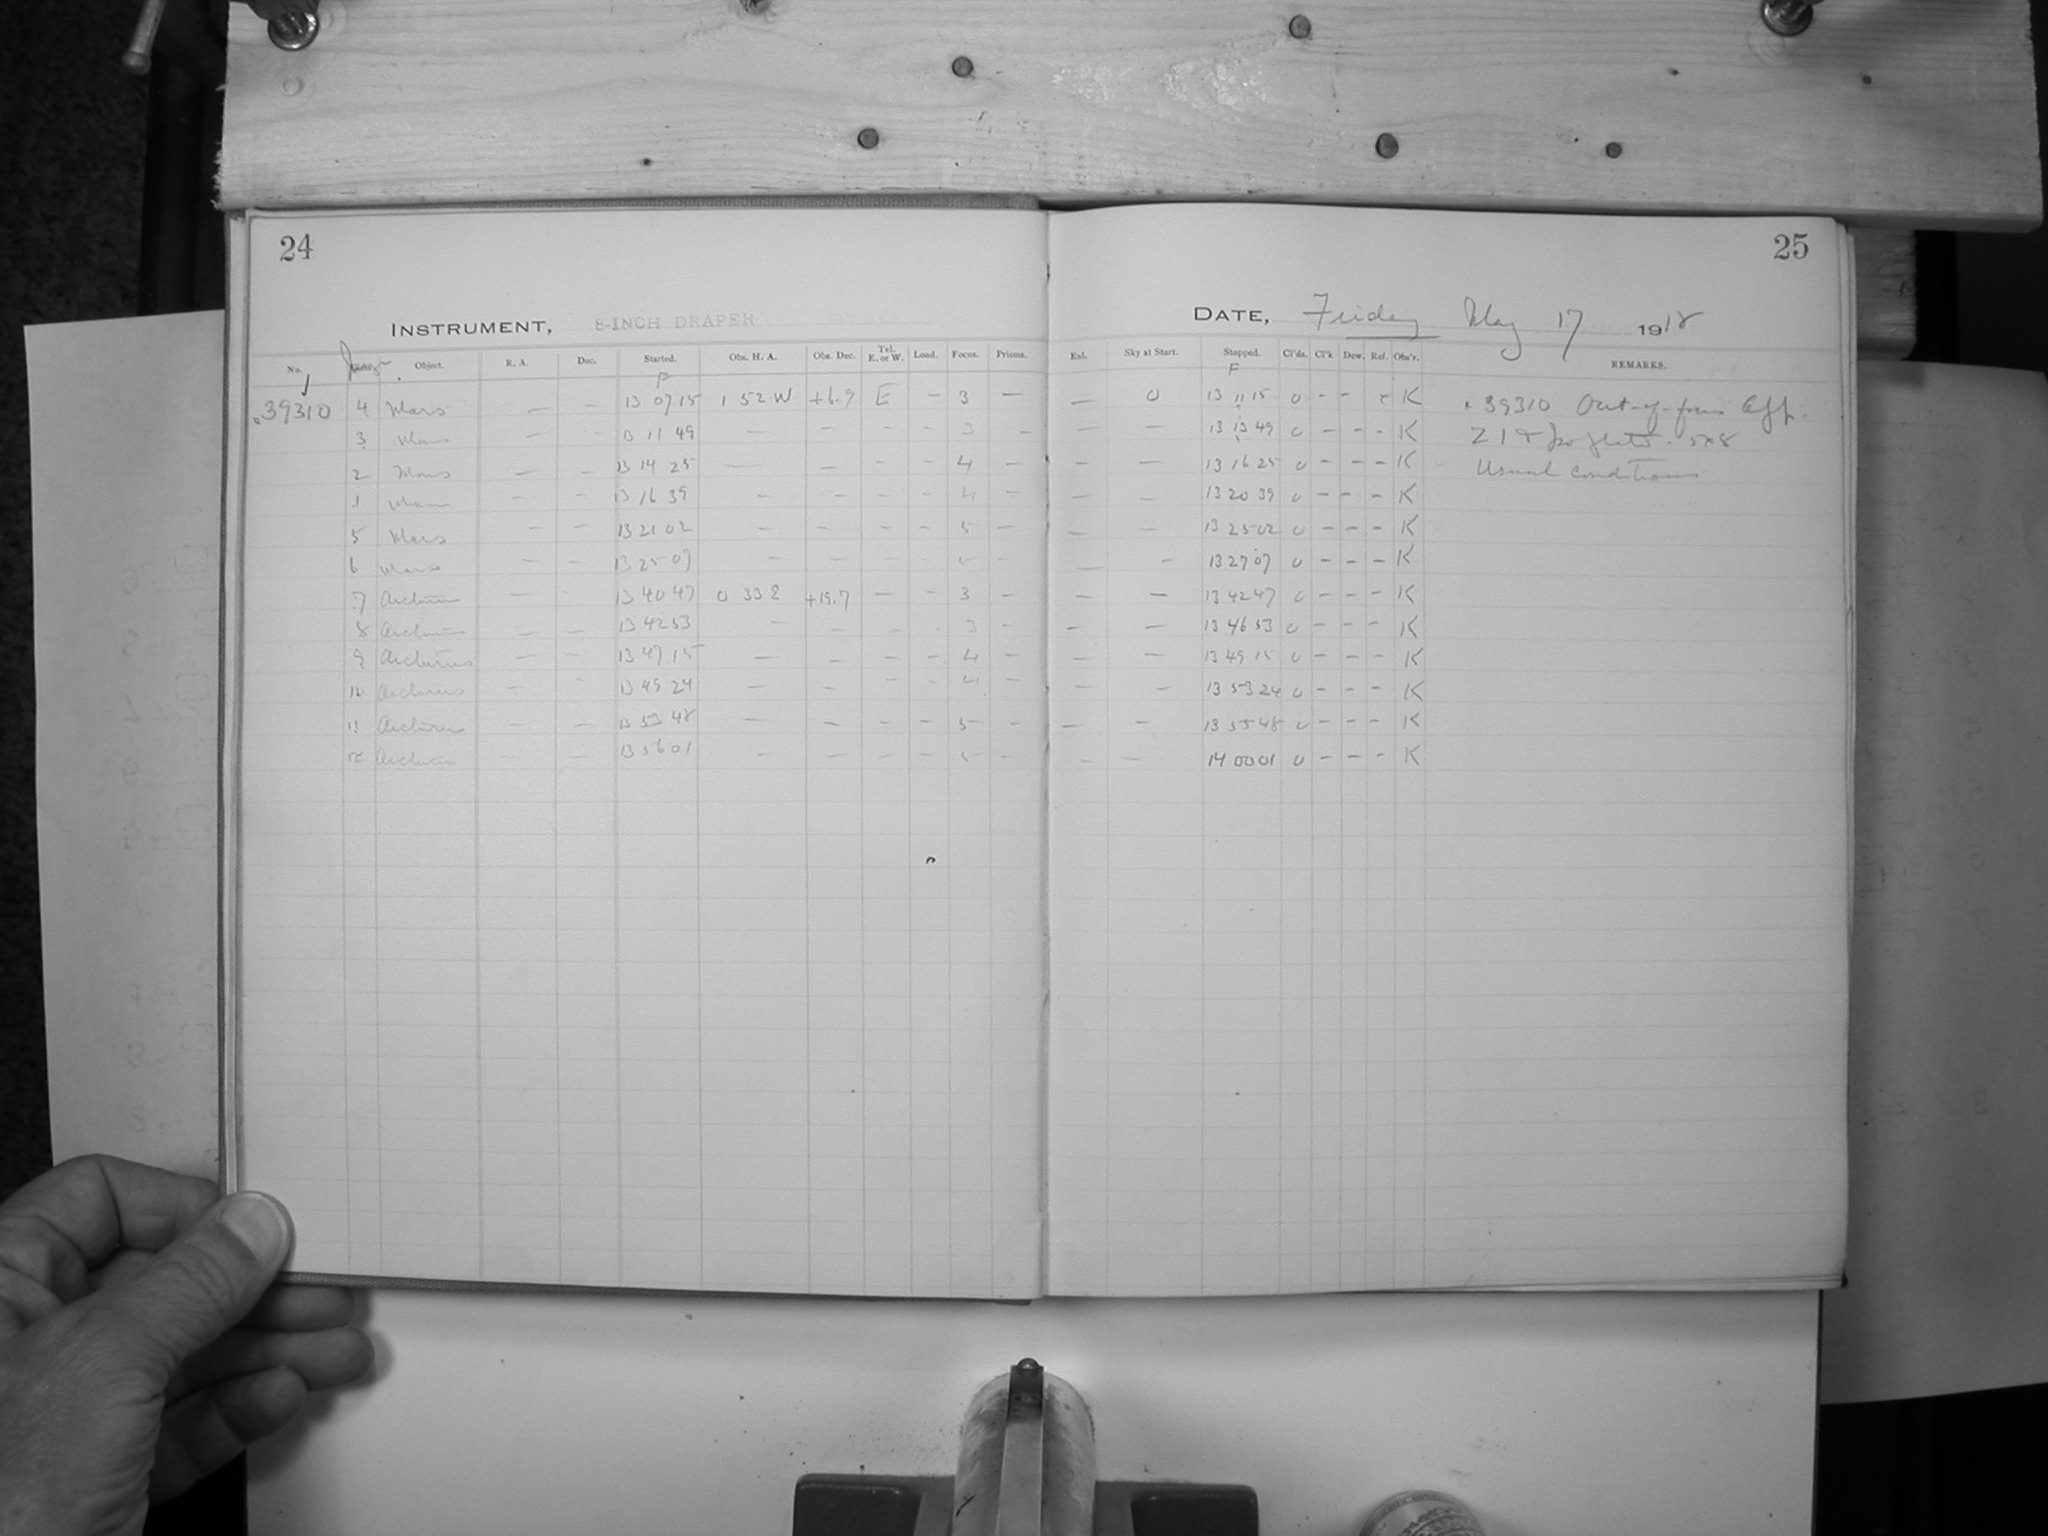 24
INSTRUMENT, 8-INCH DRAPER
No. Object. R. A. Dec. Started. Obs. H. A. Obs. Dec. Tel. E. or W. Load. Focus. Prisms.
F
39310 4 Mars — — 13 07 15 1 52 W +6.9 E — 3 —
3 Mars — — 13 11 49 — — — — 3 —
2 Mars — — 13 14 25 — — — — 4 —
1 Mars — — 13 16 39 — — — — 4 —
5 Mars — — 13 21 02 — — — — 5 —
6 Mars — — 13 25 07 — — — — 5 —
7 Arcturus — — 13 40 47 0 33 E +19.7 — — 3 —
8 Arcturus — — 13 42 53 — — — — 3 —
9 Arcturus — — 13 47 15 — — — — 4 —
10 Arcturus — — 13 49 24 — — — — 4 —
11 Arcturus — — 13 53 48 — — — — 5 —
12 Arcturus — — 13 56 01 — — — — 5 —
25
DATE, Friday May 17 1918
Exl. Sky at Start. Stopped. Cl'ds. Cl'k Dew. Ref. Obs'r. REMARKS.
F
— 0 13 11 15 0 — — K 39310 Out-of-focus
— — 13 13 49 0 — — — K
— — 13 16 25 0 — — — K Usual conditions
— — 13 20 39 0 — — — K
— — 13 25 02 0 — — — K
— — 13 27 07 0 — — — K
— — 13 42 47 0 — — — K
— — 13 46 53 0 — — — K
— — 13 49 15 0 — — — K
— — 13 53 24 0 — — — K
— — 13 55 48 0 — — — K
— — 14 00 01 0 — — — K